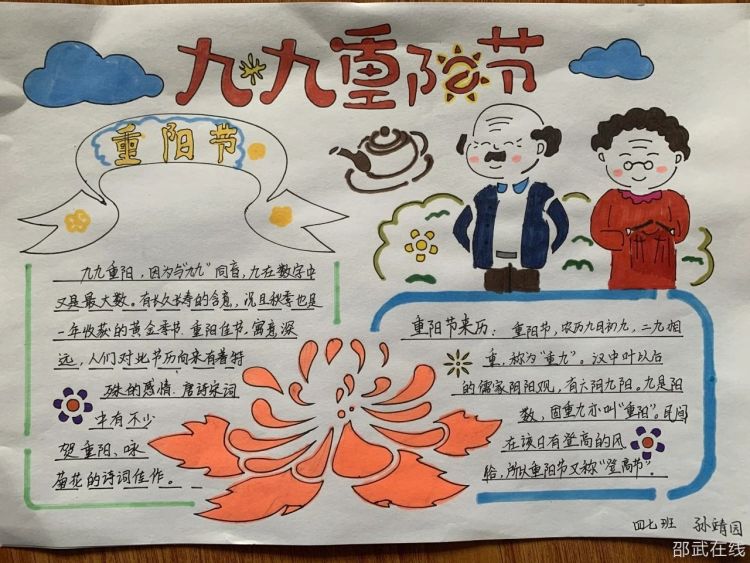 九九重阳节
重阳节
九九重阳，因为与"九九"同音，九在数字中
又是最大数。有长久长寿的含意，况且秋季也是
一年收获的黄金季节，重阳佳节，寓意深
远，人们对此节历向来有着特
殊的感情，唐诗宋词
中有不少
贺重阳、咏
菊花的诗词佳作。
重阳节来历：重阳节，农历九月初九，二九相
重，称为"重九"。汉中叶以后
的儒家阴阳观，有六阴九阳。九是阳
数，固重九亦叫"重阳"。民间
在该日有登高的风
俗，所以重阳节又称"登高节"。
四七班 孙靖园
邵武在线